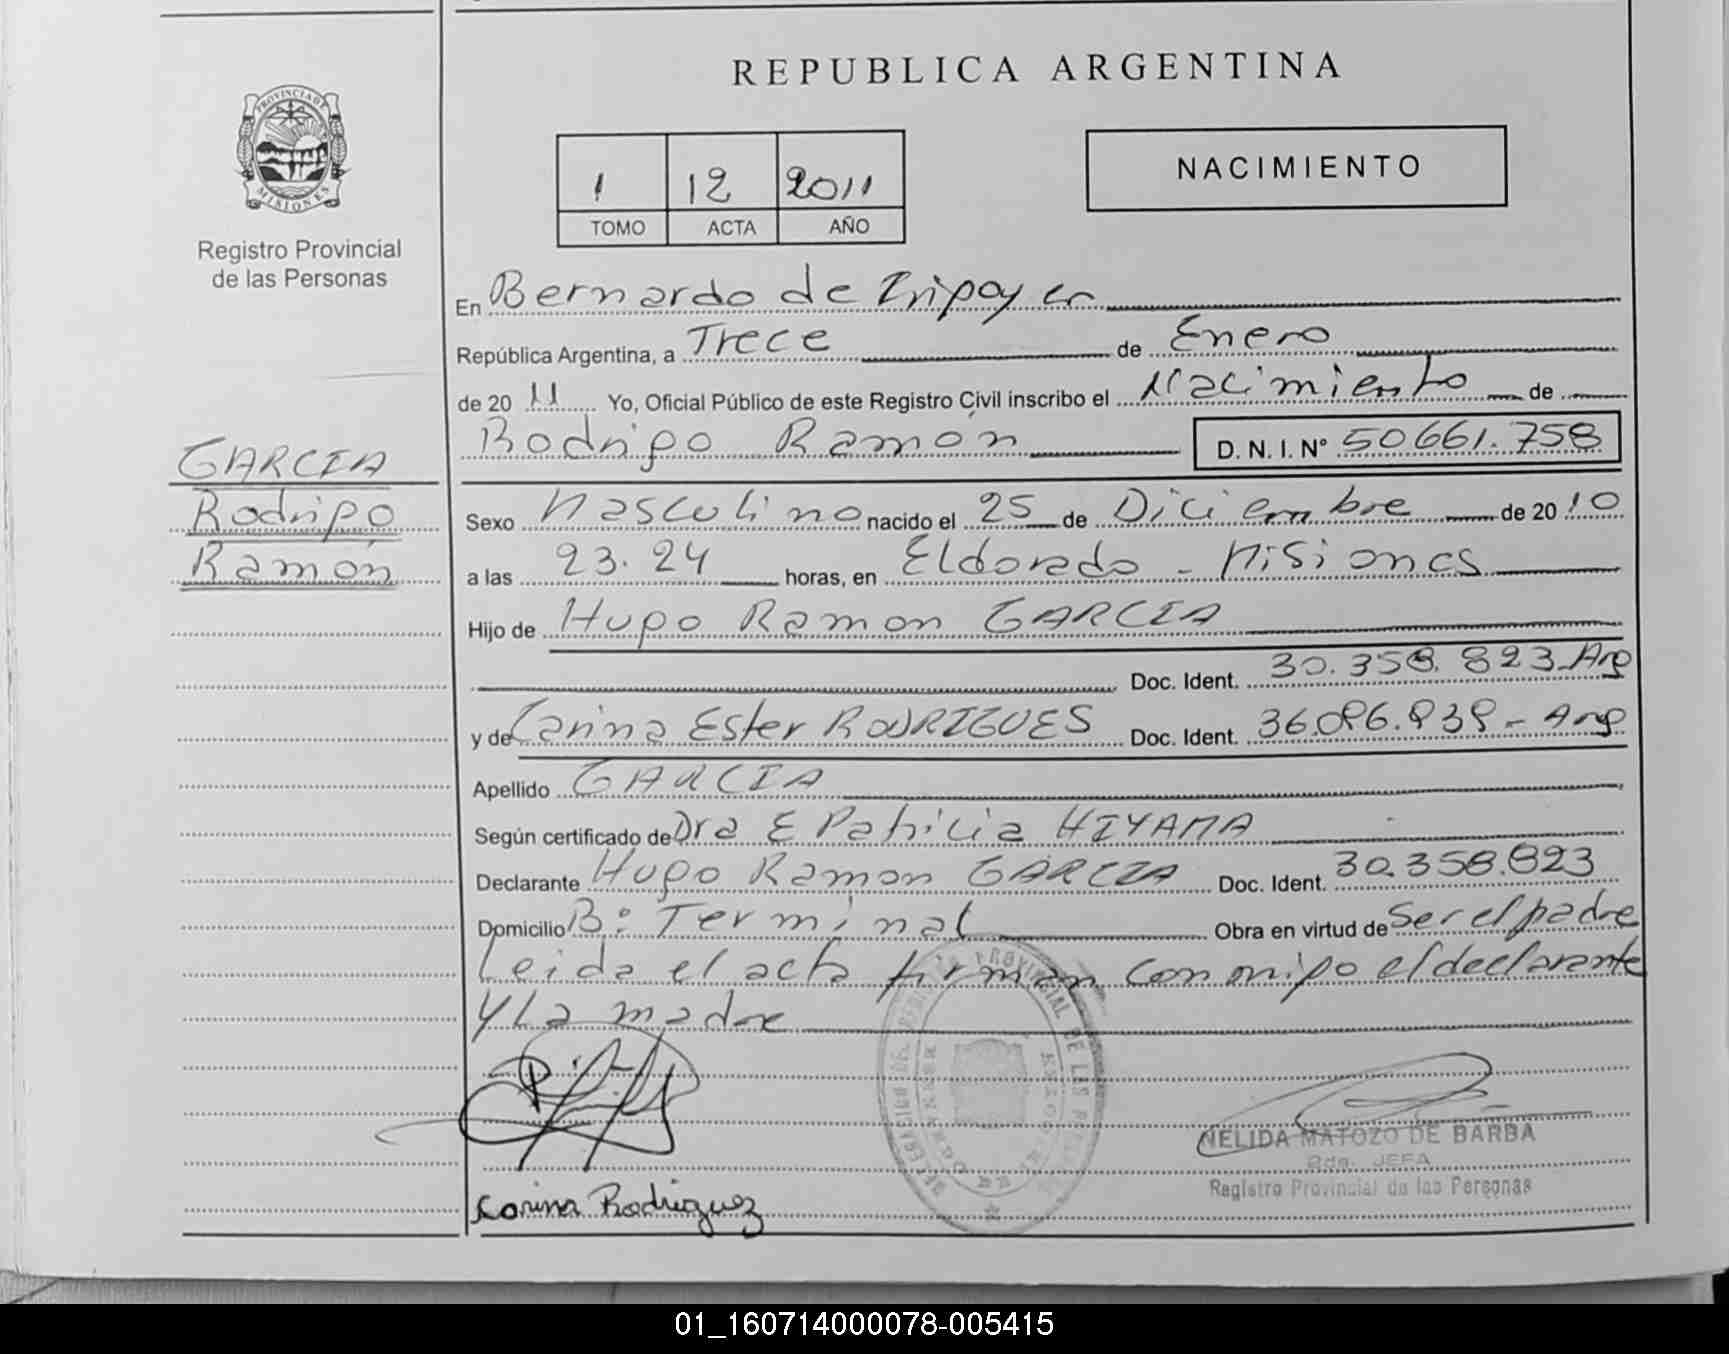 REPUBLICA ARGENTINA
PROVINCIA DE
MISIONES
Registro Provincial
de las Personas
1 12 2011
TOMO ACTA AÑO
NACIMIENTO
En Bernardo de Irigoyen
República Argentina, a Trece de Enero
de 2011 Yo, Oficial Público de este Registro Civil inscribo el Nacimiento de
Rodrigo Ramón D. N. I. Nº 50661.758
GARCIA
Rodrigo
Ramón
Sexo Masculino nacido el 25 de Diciembre de 2010
a las 23.24 horas, en Eldorado - Misiones
Hijo de Hugo Ramon GARCIA
Doc. Ident. 30.358.823 Arg
y de Carina Ester RODRIGUES Doc. Ident. 36.096.939 - Arg
Apellido GARCIA
Según certificado de Dra E Patricia HIYAMA
Declarante Hugo Ramon GARCIA Doc. Ident. 30.358.823
Domicilio Bº Terminal Obra en virtud de Ser el padre
Leida el acta firman conmigo el declarante
y La madre
PROVINCIAL DE LAS
NELIDA MATOZO DE BARBA
2da. JEFA
Registro Provincial de las Personas
Carina Rodriguez
01_160714000078-005415